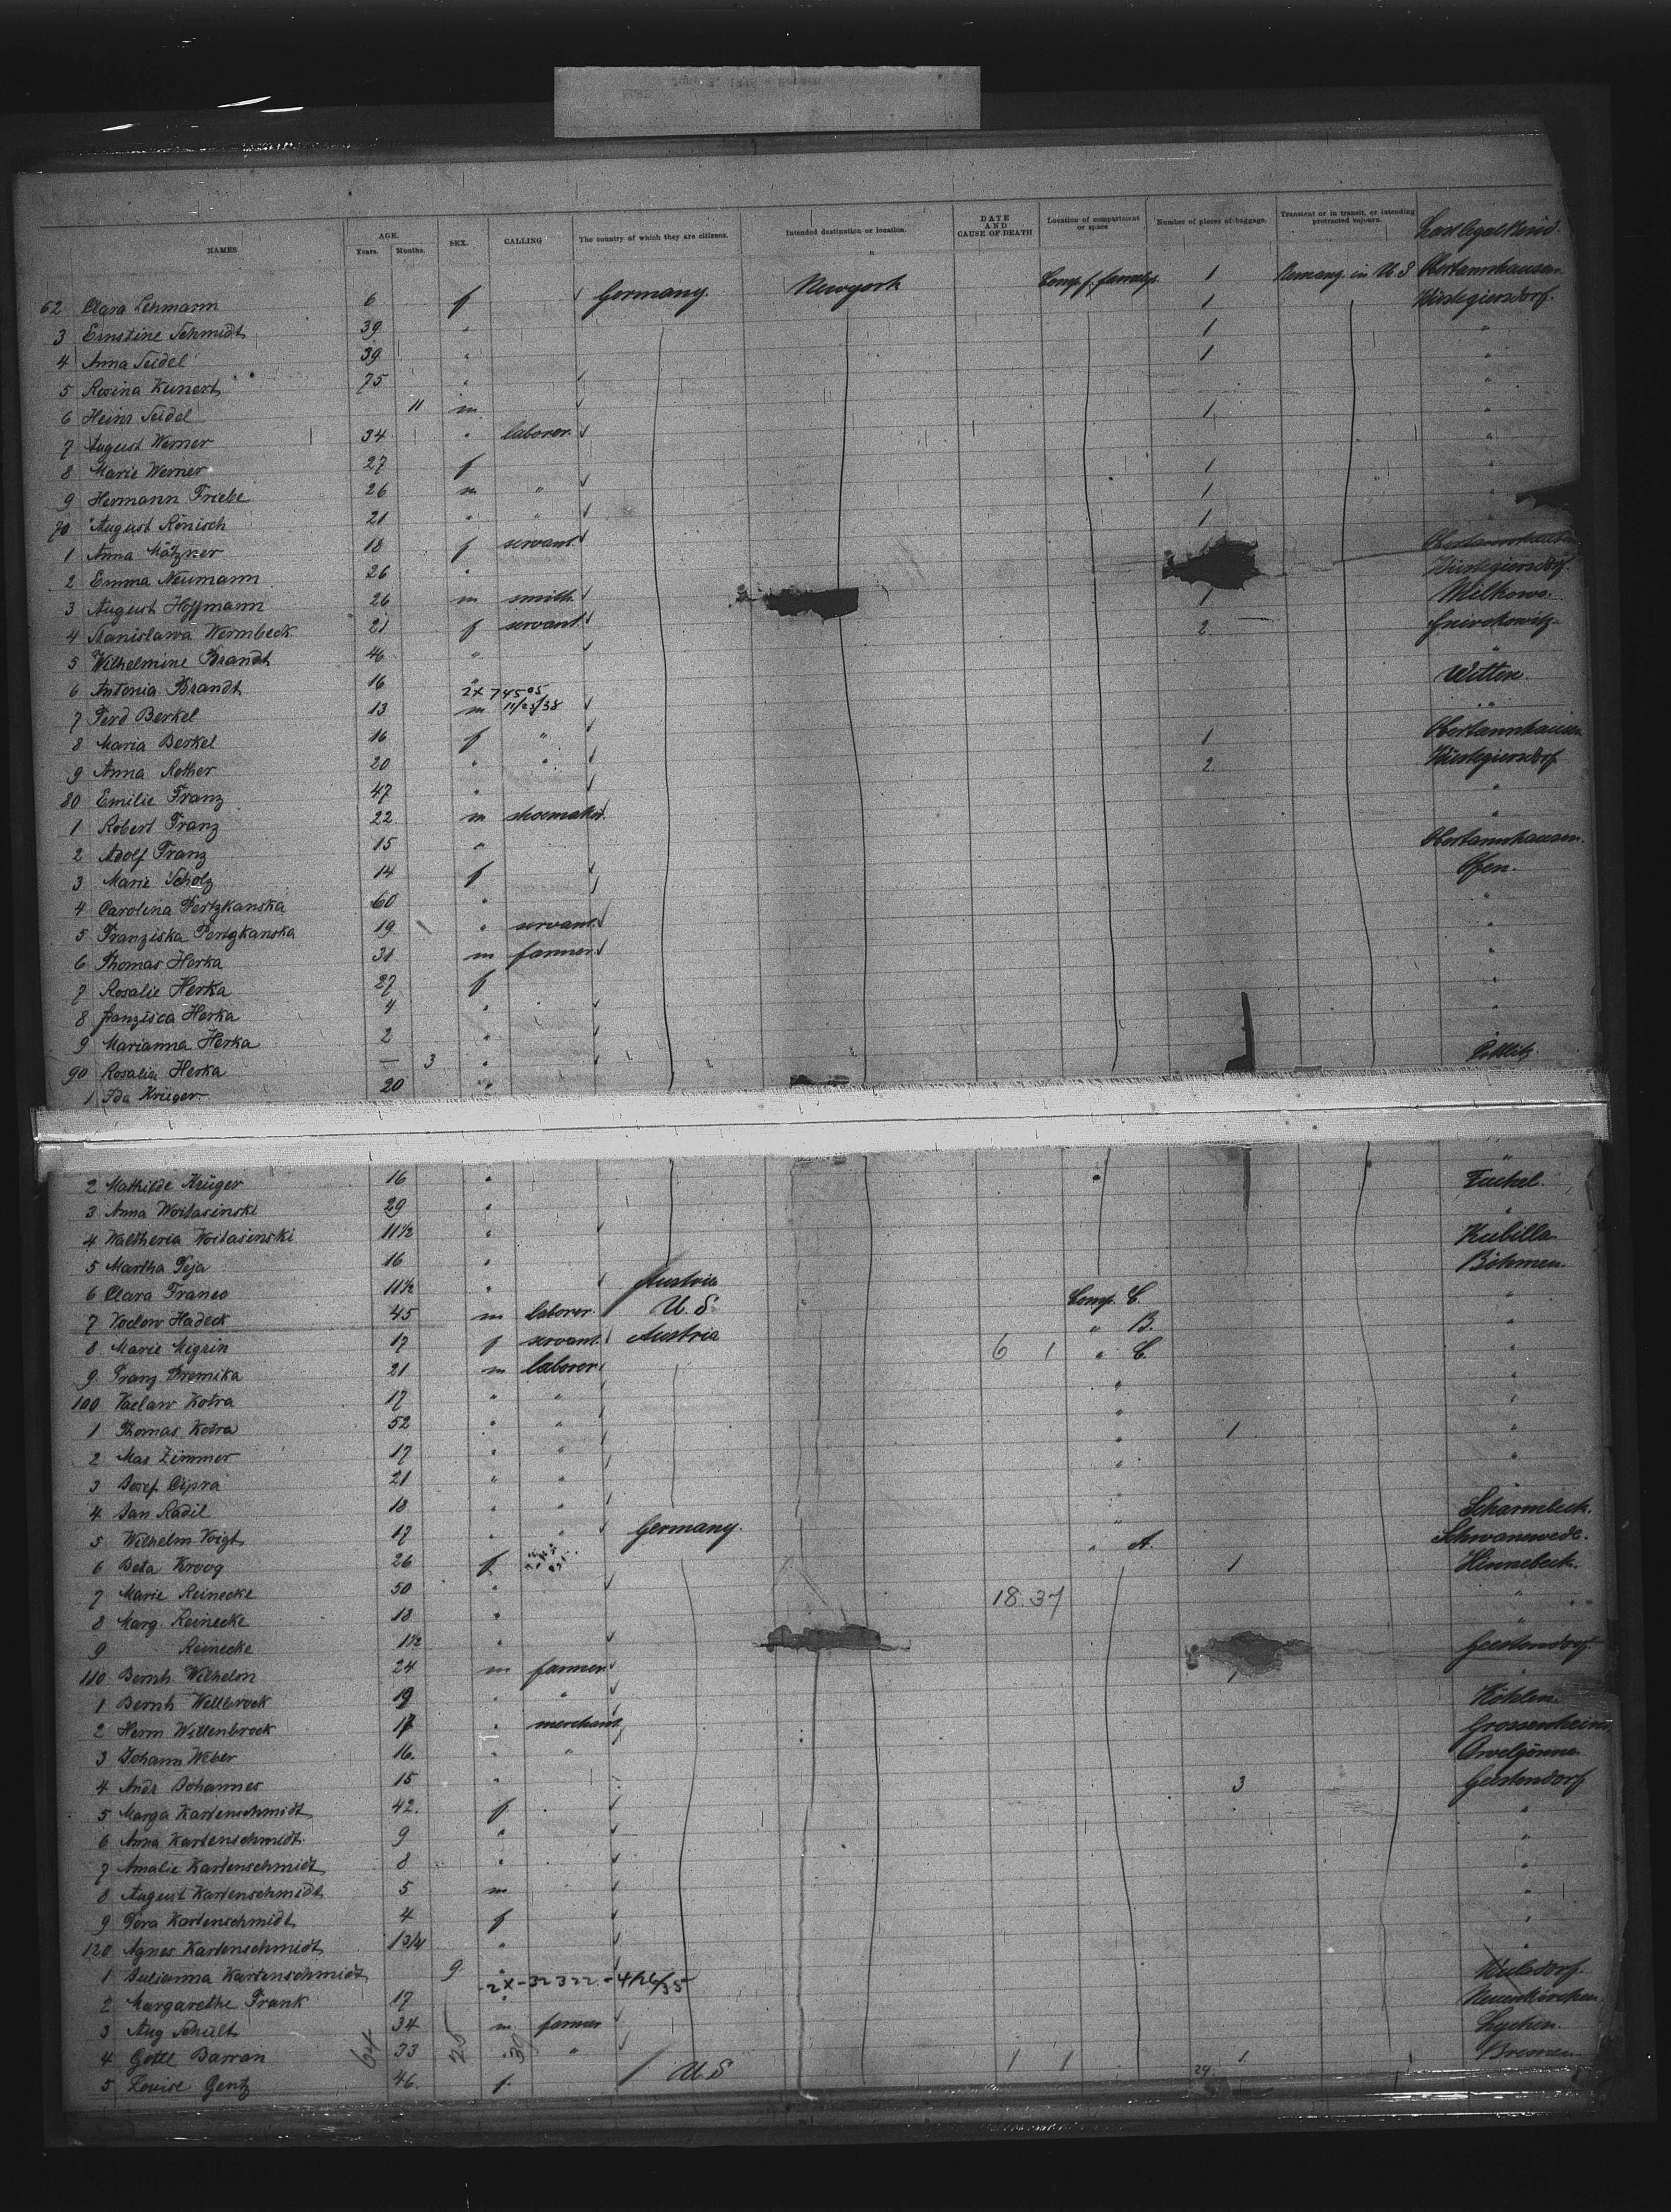 NAMES AGE. Years. Months. SEX. CALLING The country of which they are citizens. Intended destination or location. DATE AND CAUSE OF DEATH Location of compartment or space Number of pieces of baggage. Transient or in transit, or intending protracted sojourn.
62 Clara Lehmann 6 f Germany. Newyork 1 in U.S Obertannhausen
3 Ernstine Schmidt 39 " 1 Wüstegiersdorf.
4 Anna Seidel 39 " 1 "
5 Rosina Kunert 75 " 1 "
6 Heinr Seidel 11 m "
7 August Werner 34 " laborer. 1 "
8 Marie Werner 27 f "
9 Hermann Friebe 26 m " 1 "
70 August Rönisch 21 " " 1 "
1 Anna Mätzner 18 f servant. 1 Obertannhausen
2 Emma Neumann 26 " Wüstegiersdorf.
3 August Hoffmann 26 m smith. Wilkowo.
4 Stanislawa Wermbeck 21 f servant. 1
5 Wilhelmine Brandt 46 " 2 "
6 Antonia Brandt 16 " Witten.
2X 74505
7 Ferd Berkel 13 m 11/23/38 "
8 Maria Berkel 16 f " Obertannhausen
9 Anna Rother 20 " " 1 Wüstegiersdorf
80 Emilie Franz 47 " 2 "
1 Robert Franz 22 m shoemaker. "
2 Adolf Franz 15 " Obertannhausen.
3 Marie Scholz 14 f
4 Carolina Pertzkanska 60 " "
5 Franziska Pertzkanska 19 " servant. "
6 Thomas Herka 31 m farmer "
7 Rosalie Herka 27 f "
8 Franzisca Herka 4 " "
9 Marianna Herka 2 "
90 Rosalia Herka — 3 "
1 Ida Krüger 20 "
2 Mathilde Krüger 16 " Tuchel.
3 Anna Woitasinski 29 " "
4 Waltheria Woitasinski 11½ " Kubilla
5 Martha Peja 16 " Böhmen.
6 Clara Franco 11½ " Austria "
7 Vaclaw Hadeck 45 m laborer. U.S. Comp. C.
8 Marie Migrin 17 f servant. Austria " B. "
9 Franz 21 m laborer 6 1 " C. "
100 Vaclaw Kotra 17 " " " "
1 Thomas Kotra 52 " " " 1 "
2 Max Zimmer 17 " " " "
3 Josef Cipra 21 " " " "
4 Jan Radil 18 " " " Scharmbeck.
5 Wilhelm Voigt 17 " " Germany. " Schwanewede.
6 Beta Kroog 26 f " A. Hinnebeck.
7 Marie Reinecke 50 " 1 "
8 Marg. Reinecke 18 " 18.37 "
9 Reinecke 1½ " Geestendorf.
110 Bernh. Wilhelm 24 m farmer "
1 Bernh Wellbrock 19 " " Köhlen.
2 Herm Willenbrock 17 " merchant Grossenheim
3 Johann Weber 16. " " Ovelgönne
4 Andr Johannes 15 " Geestendorf
5 Marga Kastenschmidt 42. f 3 "
6 Anna Kastenschmidt. 9 " "
7 Amalie Kastenschmidt 8 " "
8 August Kastenschmidt 5 m "
9 Dora Kastenschmidt 4 f "
120 Agnes Kastenschmidt 1 3/4 " "
1 Julianna Kastenschmidt 9 " Wulsdorf.
2X-32322-4/26/35
2 Margarethe Frank 17 " Neuenkirchen.
3 Aug Schult 34 m farmer Lychen.
4 Gottl Barran 33 " " Bremen
64 25 39
5 Louise Gentz 46. f. U.S 1 1 24 1 1